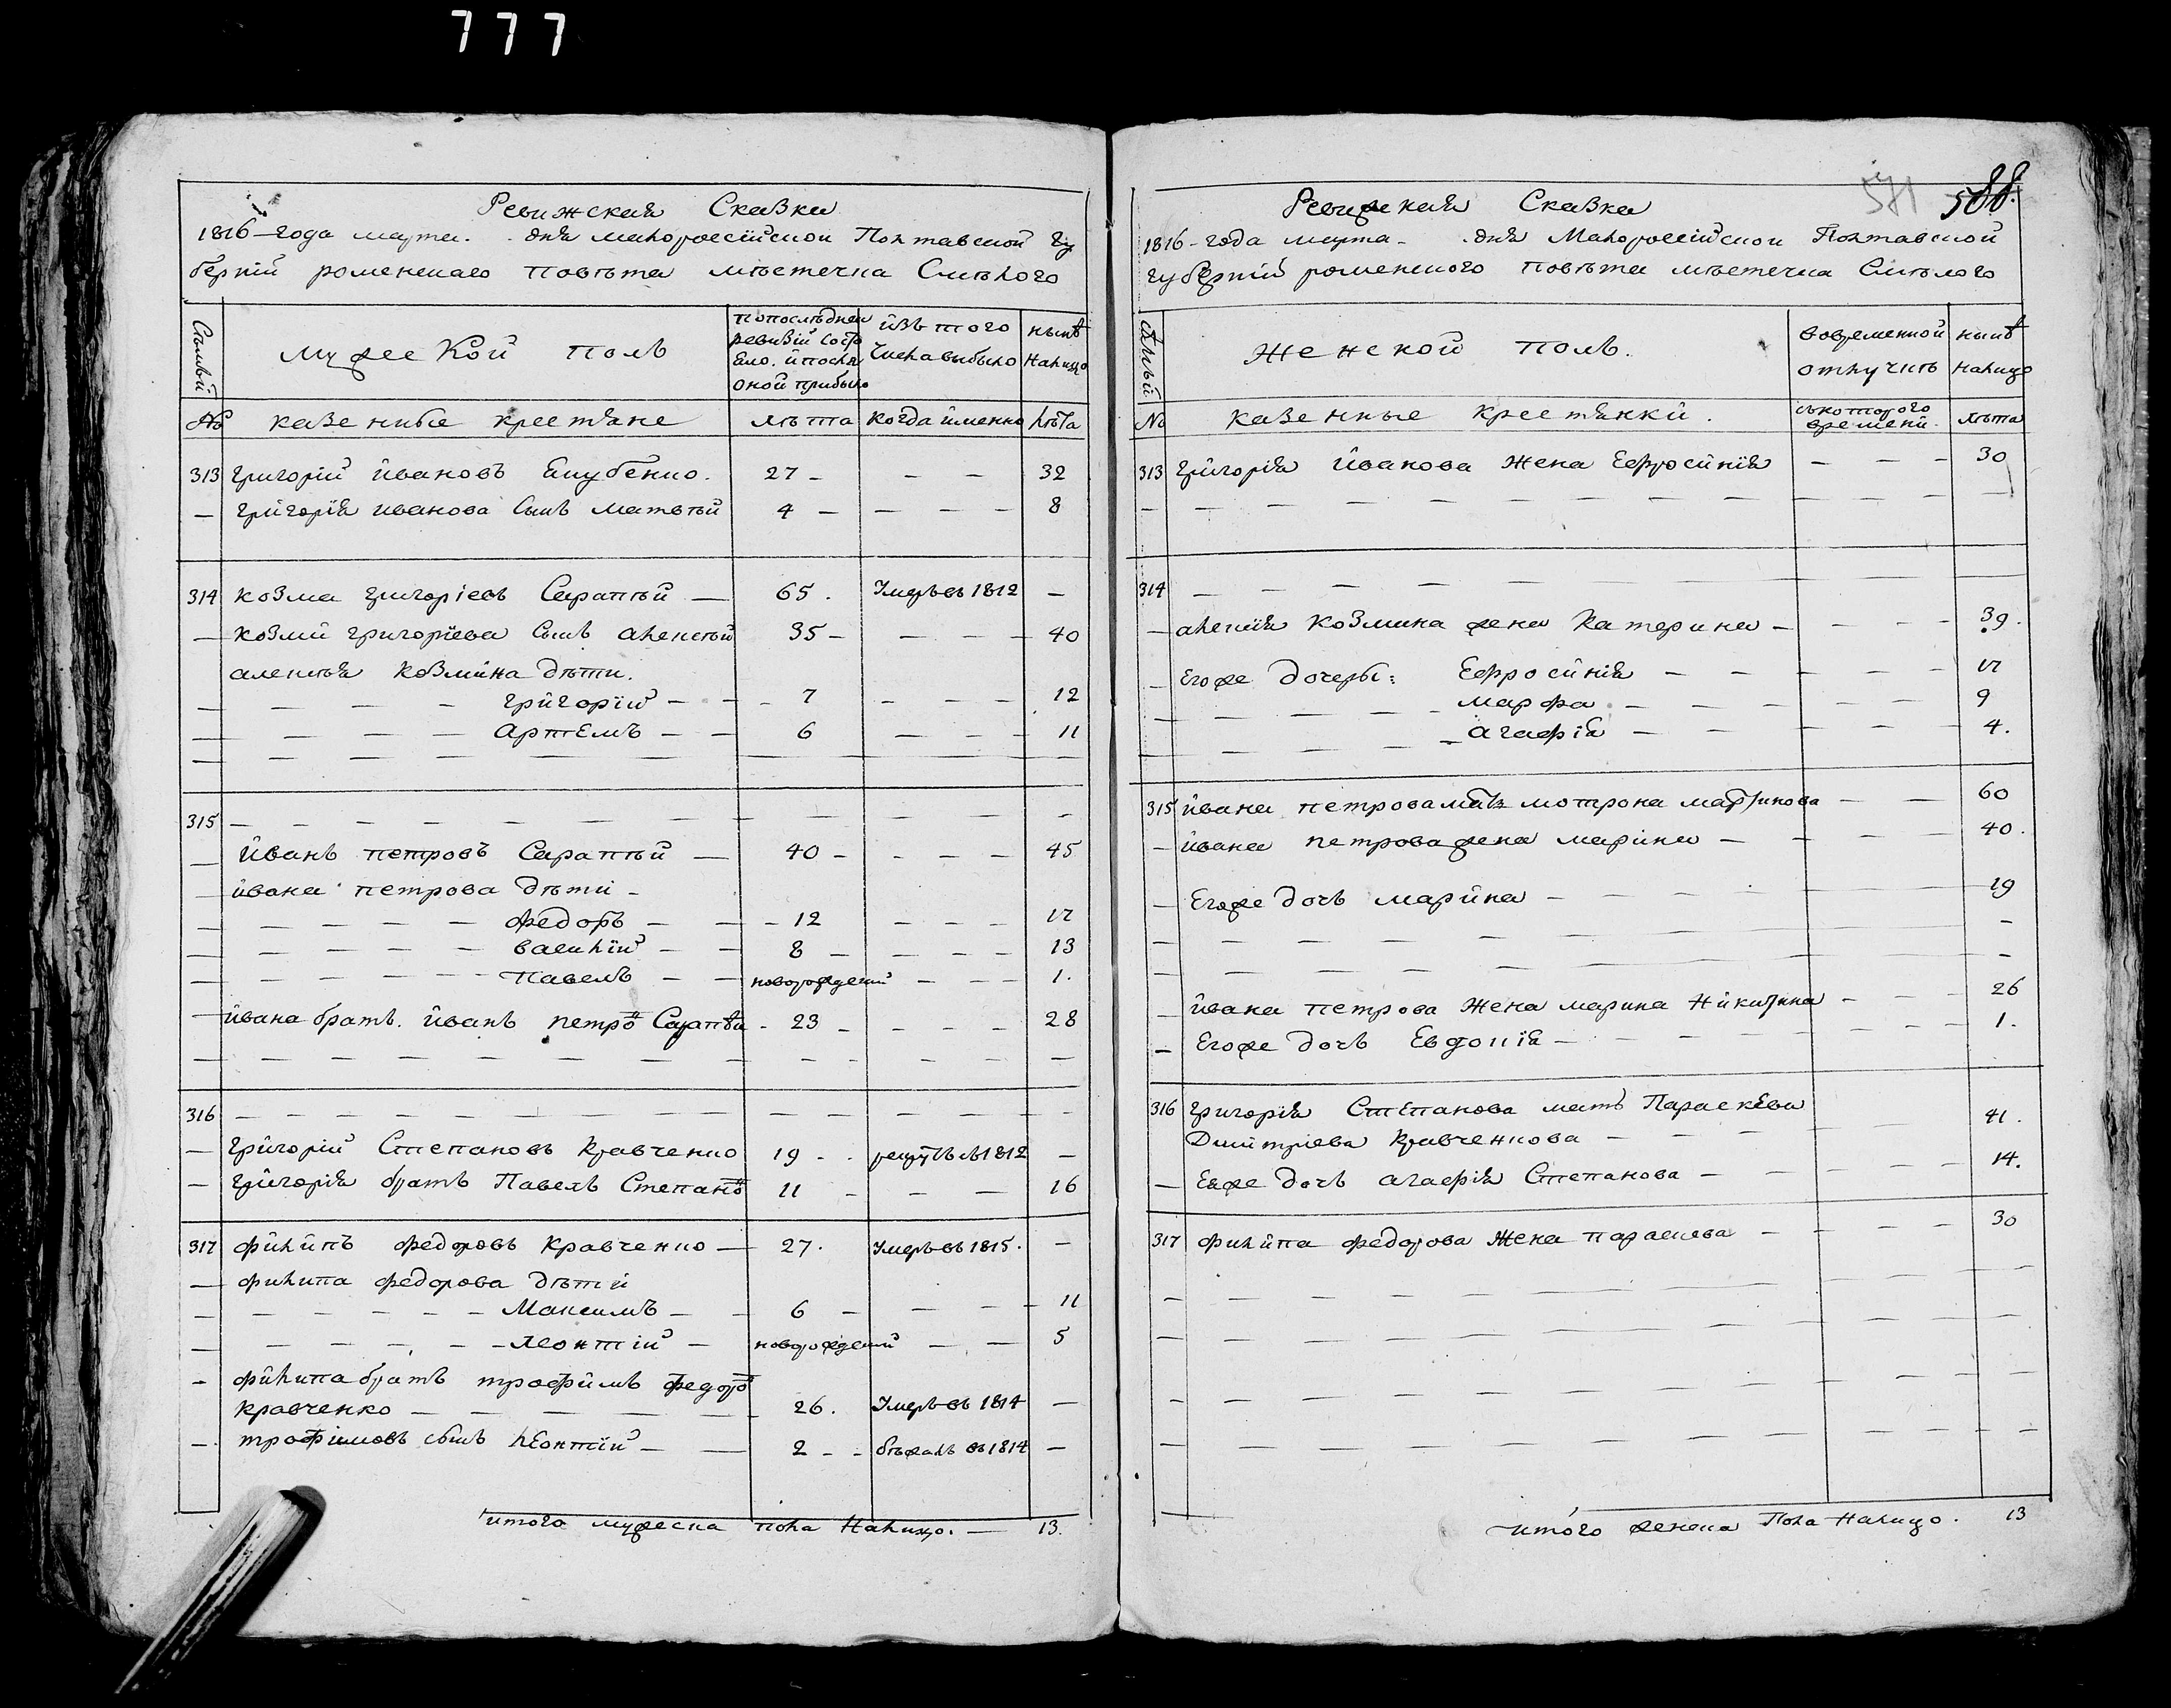 777
Ревижская Сказка
1816 - года марта . . дня малороссійской Полтавской Гу
берніи роменскаго повѣта мѣстечка Смѣлого
Сѣмьи
мужеской полъ
попослѣднеи
ревизіи состо
яло. и после
оной прибыло
изъ того
числа выбыло
нынѣ
налицо
№ казенные крестяне лѣта когда именно лѣта
313 григорій ивановъ Якубенко. 27 - - - 32
- григорія иванова сынъ матвѣй 4 - - - - 8
314 козма григоріевъ Сарапѣй - 65. Умеръ въ 1812 -
- козми григоріева сынъ алексѣй 35 - - - - 40
алексѣя козмина дѣти.
- - - - - григорій - - - 7 - - - 12
- - - - - Артемъ - - 6 - - - 11
315 - - - - - - - - - -
- иванъ петровъ Сарапѣй - 40 - - - - 45
- ивана петрова дѣти -
- - - - - федоръ - - - 12 - - - 17
- - - - - василій - - 8 - - - - 13
- - - - - павелъ - - новорожденій - - - 1.
- ивана братъ. иванъ петро в Сарапѣй - 23 - - - - 28
316 - - - - - - - - - -
- григорій Степановъ кравченко 19 - . рекрутъ въ 1812 -
- григорія братъ Павелъ Степано в 11 - - - 16
317 филипъ федоровъ кравченко - 27. Умеръ въ 1815. -
- филипа федорова дѣти
- - - - - - Максимъ - - 6 - - - - 11
- - - - - - леонтій - новорожденій - - 5
- филипа братъ трофимъ федоро в
кравченко - - - - - 26. Умеръ въ 1814 -
- трофимовъ сынъ леонтій - - 2 - - бѣжалъ въ 1814 -
итого мужеска пола налицо. - 13.
571 588.
Ревижская Сказка
1816 - года марта - . дня Малороссійской Полтавской
губерніи роменского повѣта мѣстечка Смѣлого
сѣмьи
женской полъ.
вовременной
отлучкѣ
нынѣ
налицо
№ казенные крестянки. съкоторого времени. лѣта
313 григорія иванова жена Ефросинія - - - 30
314 - - - - - - -
- алексія козмина жена катерина - - - - 39.
- Егоже дочеры: Ефросинія - - - - 17
- - - - - марфа - - - - 9
- - - - - агафія - - - - 4.
315 ивана петрова мать мотрона мартинова - - 60
- ивана петрова жена марина - - - - 40.
- Егоже дочь марина - - - - 19
- ивана петрова жена марина никитина - - - 26
- Егоже дочь Евдокія - - - - 1.
316 григорія Степанова мать Параскева
Дмитріева кравченкова - - - - 41.
- Еяже дочь агафія Степанова - - - - 14.
317 филипа федорова жена параскева - - - - 30
итого женска пола налицо. 13